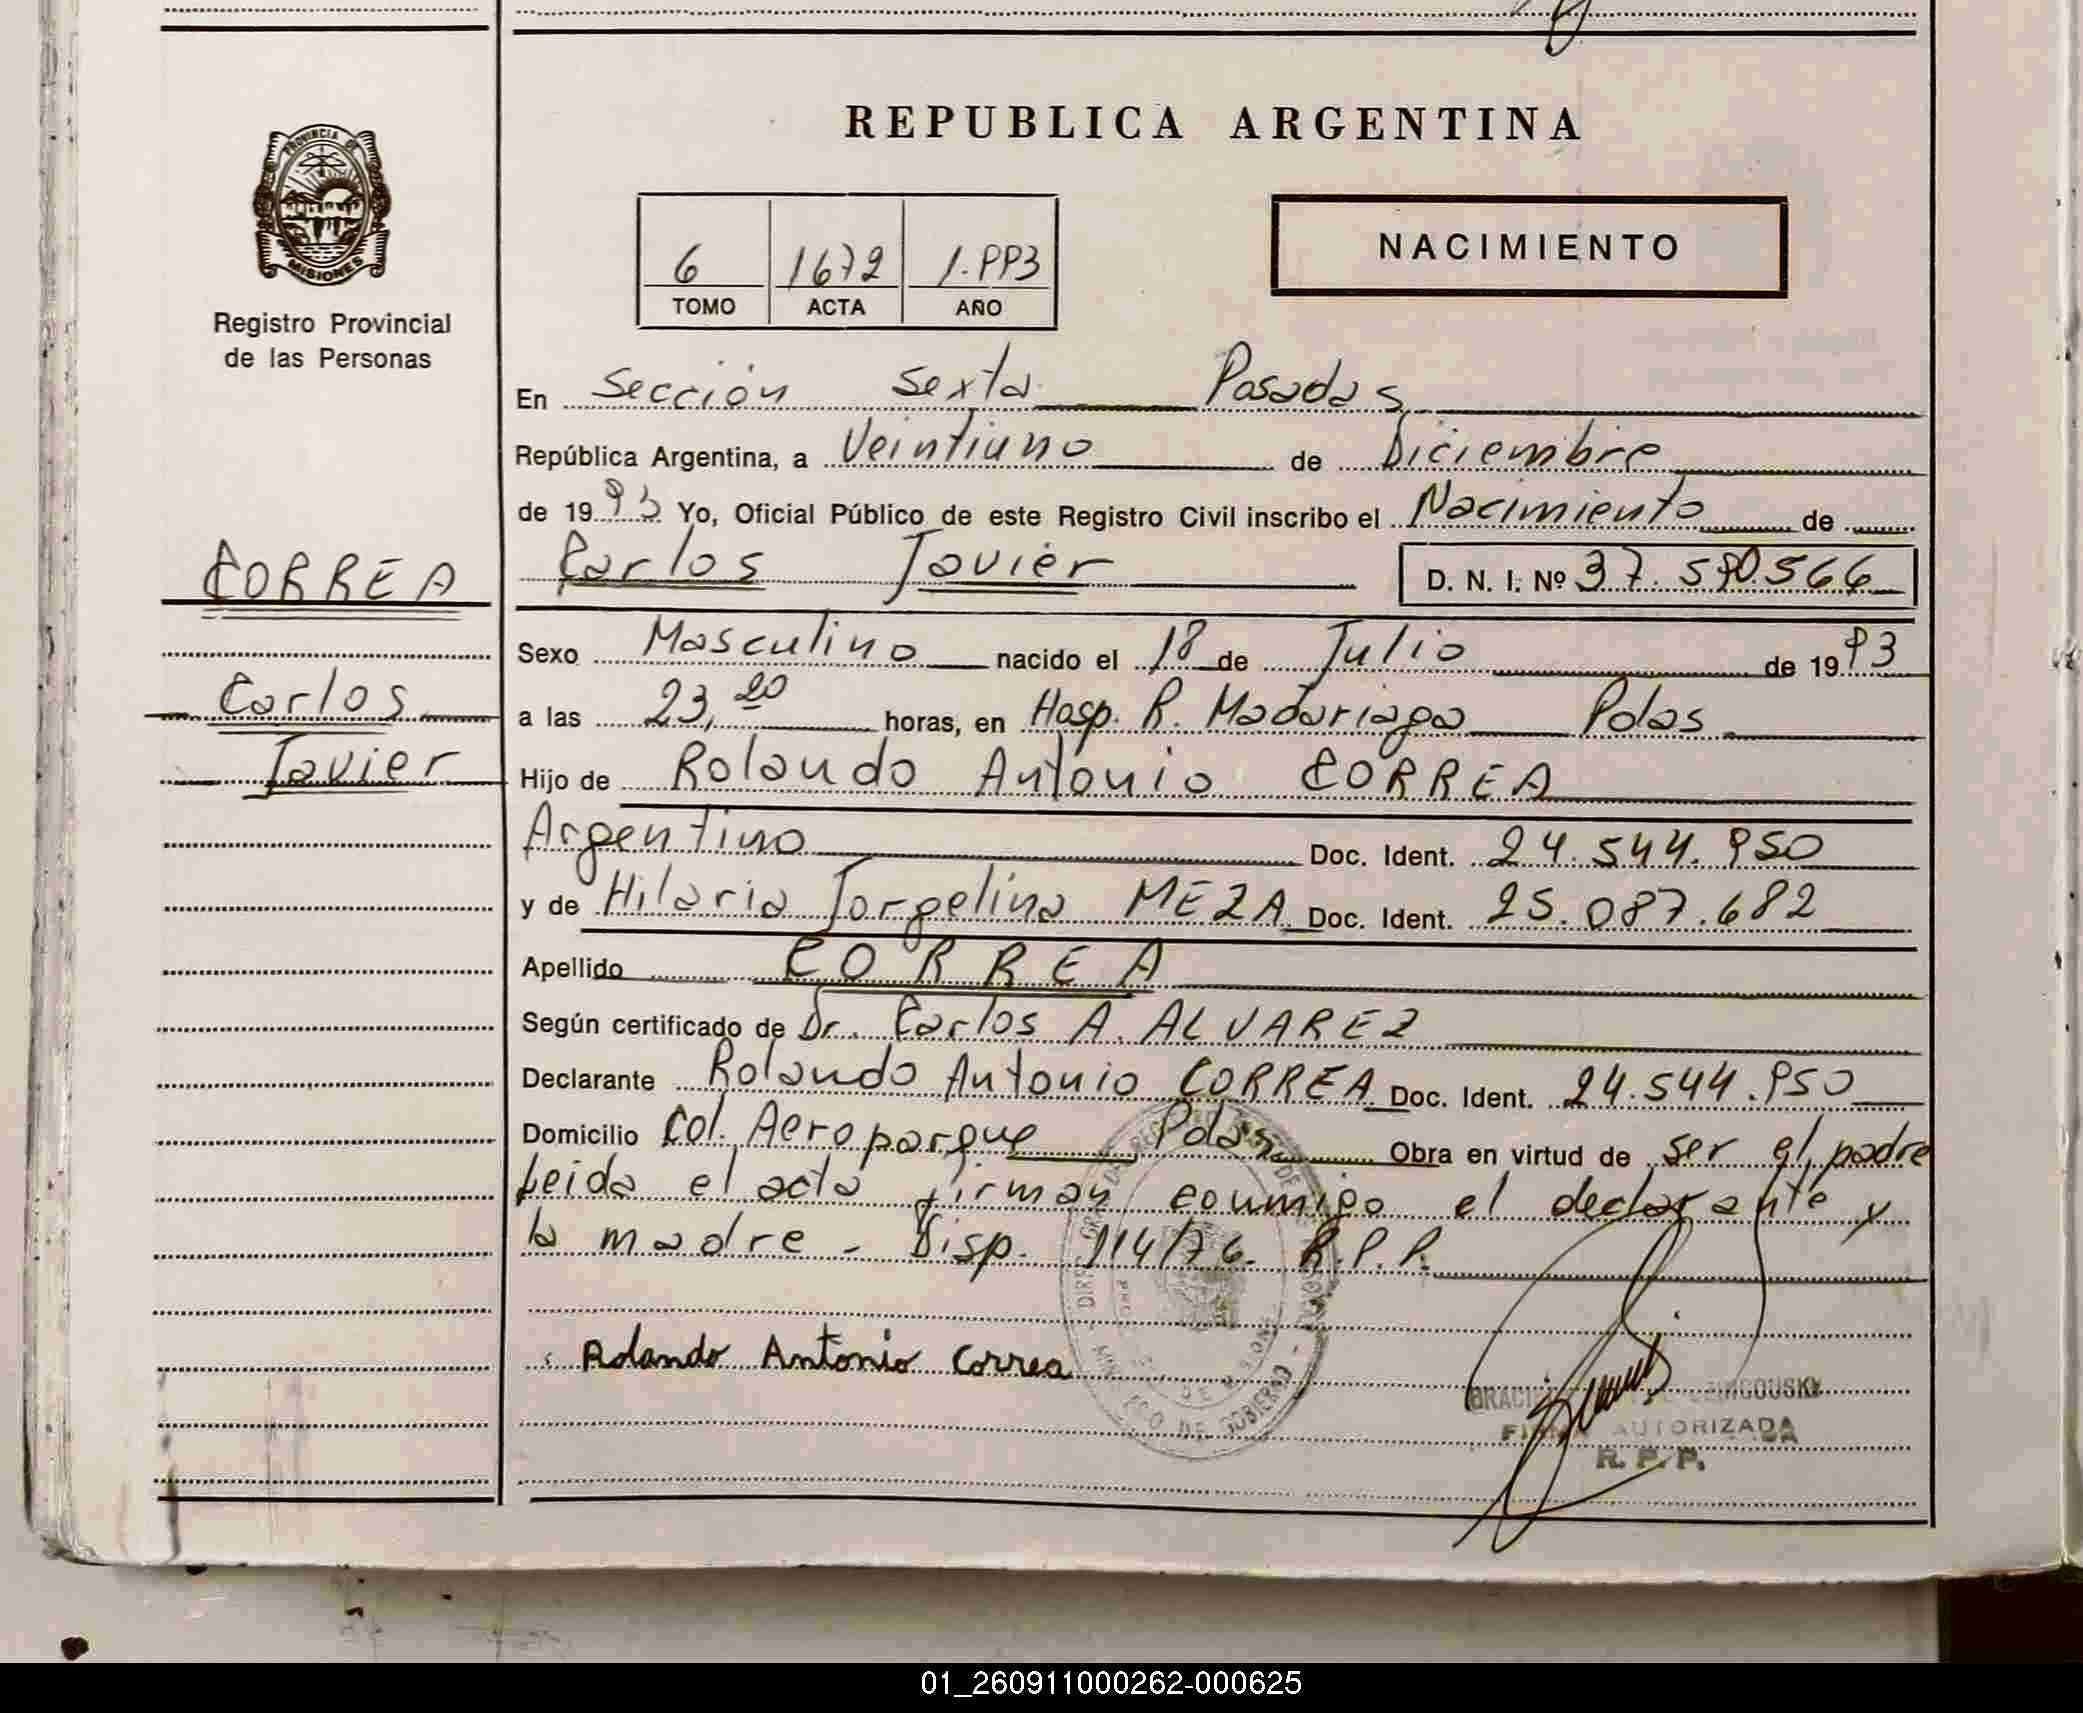 PROVINCIA DE
MISIONES
Registro Provincial
de las Personas
REPUBLICA ARGENTINA
6 1672 1.993
TOMO ACTA AÑO
NACIMIENTO
En Sección Sexta Posadas
República Argentina, a Veintiuno de Diciembre
de 1993 Yo, Oficial Público de este Registro Civil inscribo el Nacimiento de
CORREA
Carlos Javier D. N. I. Nº 37.590.566
Sexo Masculino nacido el 18 de Julio de 1993
Carlos
a las 23,20 horas, en Hosp. R. Madariaga Pdas
Javier
Hijo de Rolando Antonio CORREA
Argentino Doc. Ident. 24.544.950
y de Hilaria Jorgelina MEZA Doc. Ident. 25.087.682
Apellido CORREA
Según certificado de Dr. Carlos A. ALVAREZ
Declarante Rolando Antonio CORREA Doc. Ident. 24.544.950
Domicilio Col. Aeroparque Pdas Obra en virtud de ser el padre
Leida el acta firman conmigo el declarante y
la madre - Disp. 114/76. R.P.P.
Rolando Antonio Correa
MINISTERIO DE GOBIERNO
AUTORIZADA
R. P. P.
01_260911000262-000625